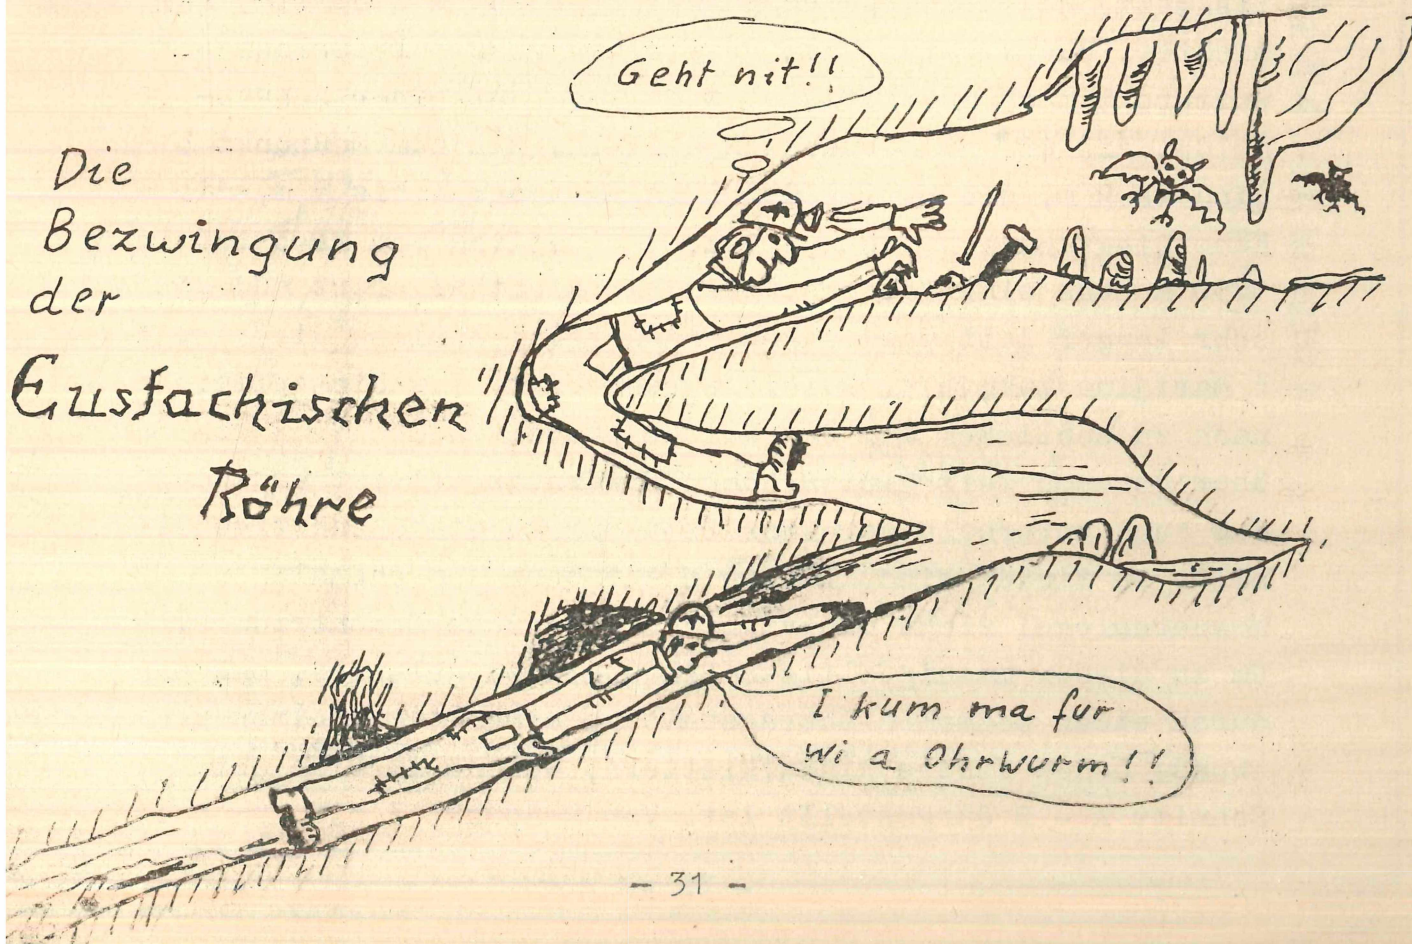 Geht nit!!
Die
Bezwingung
der
Eustachischen
Röhre
I kum ma fur
wi a Ohrwurm!!
- 31 -